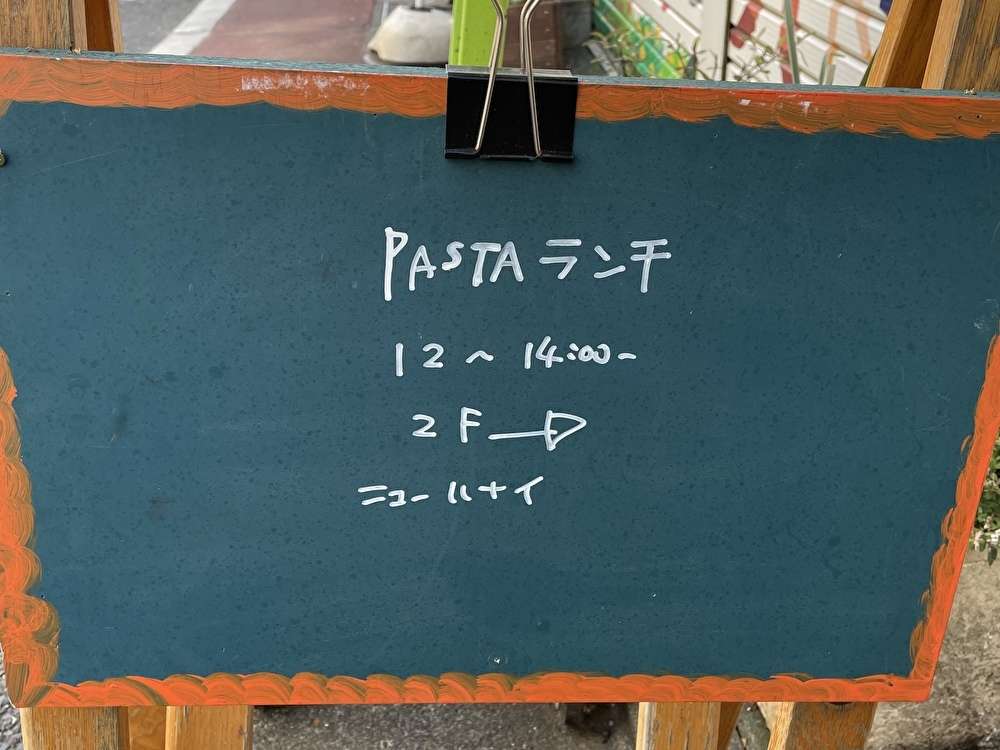 PASTA ランチ
12～14:00～
2F→
ニューハナイ